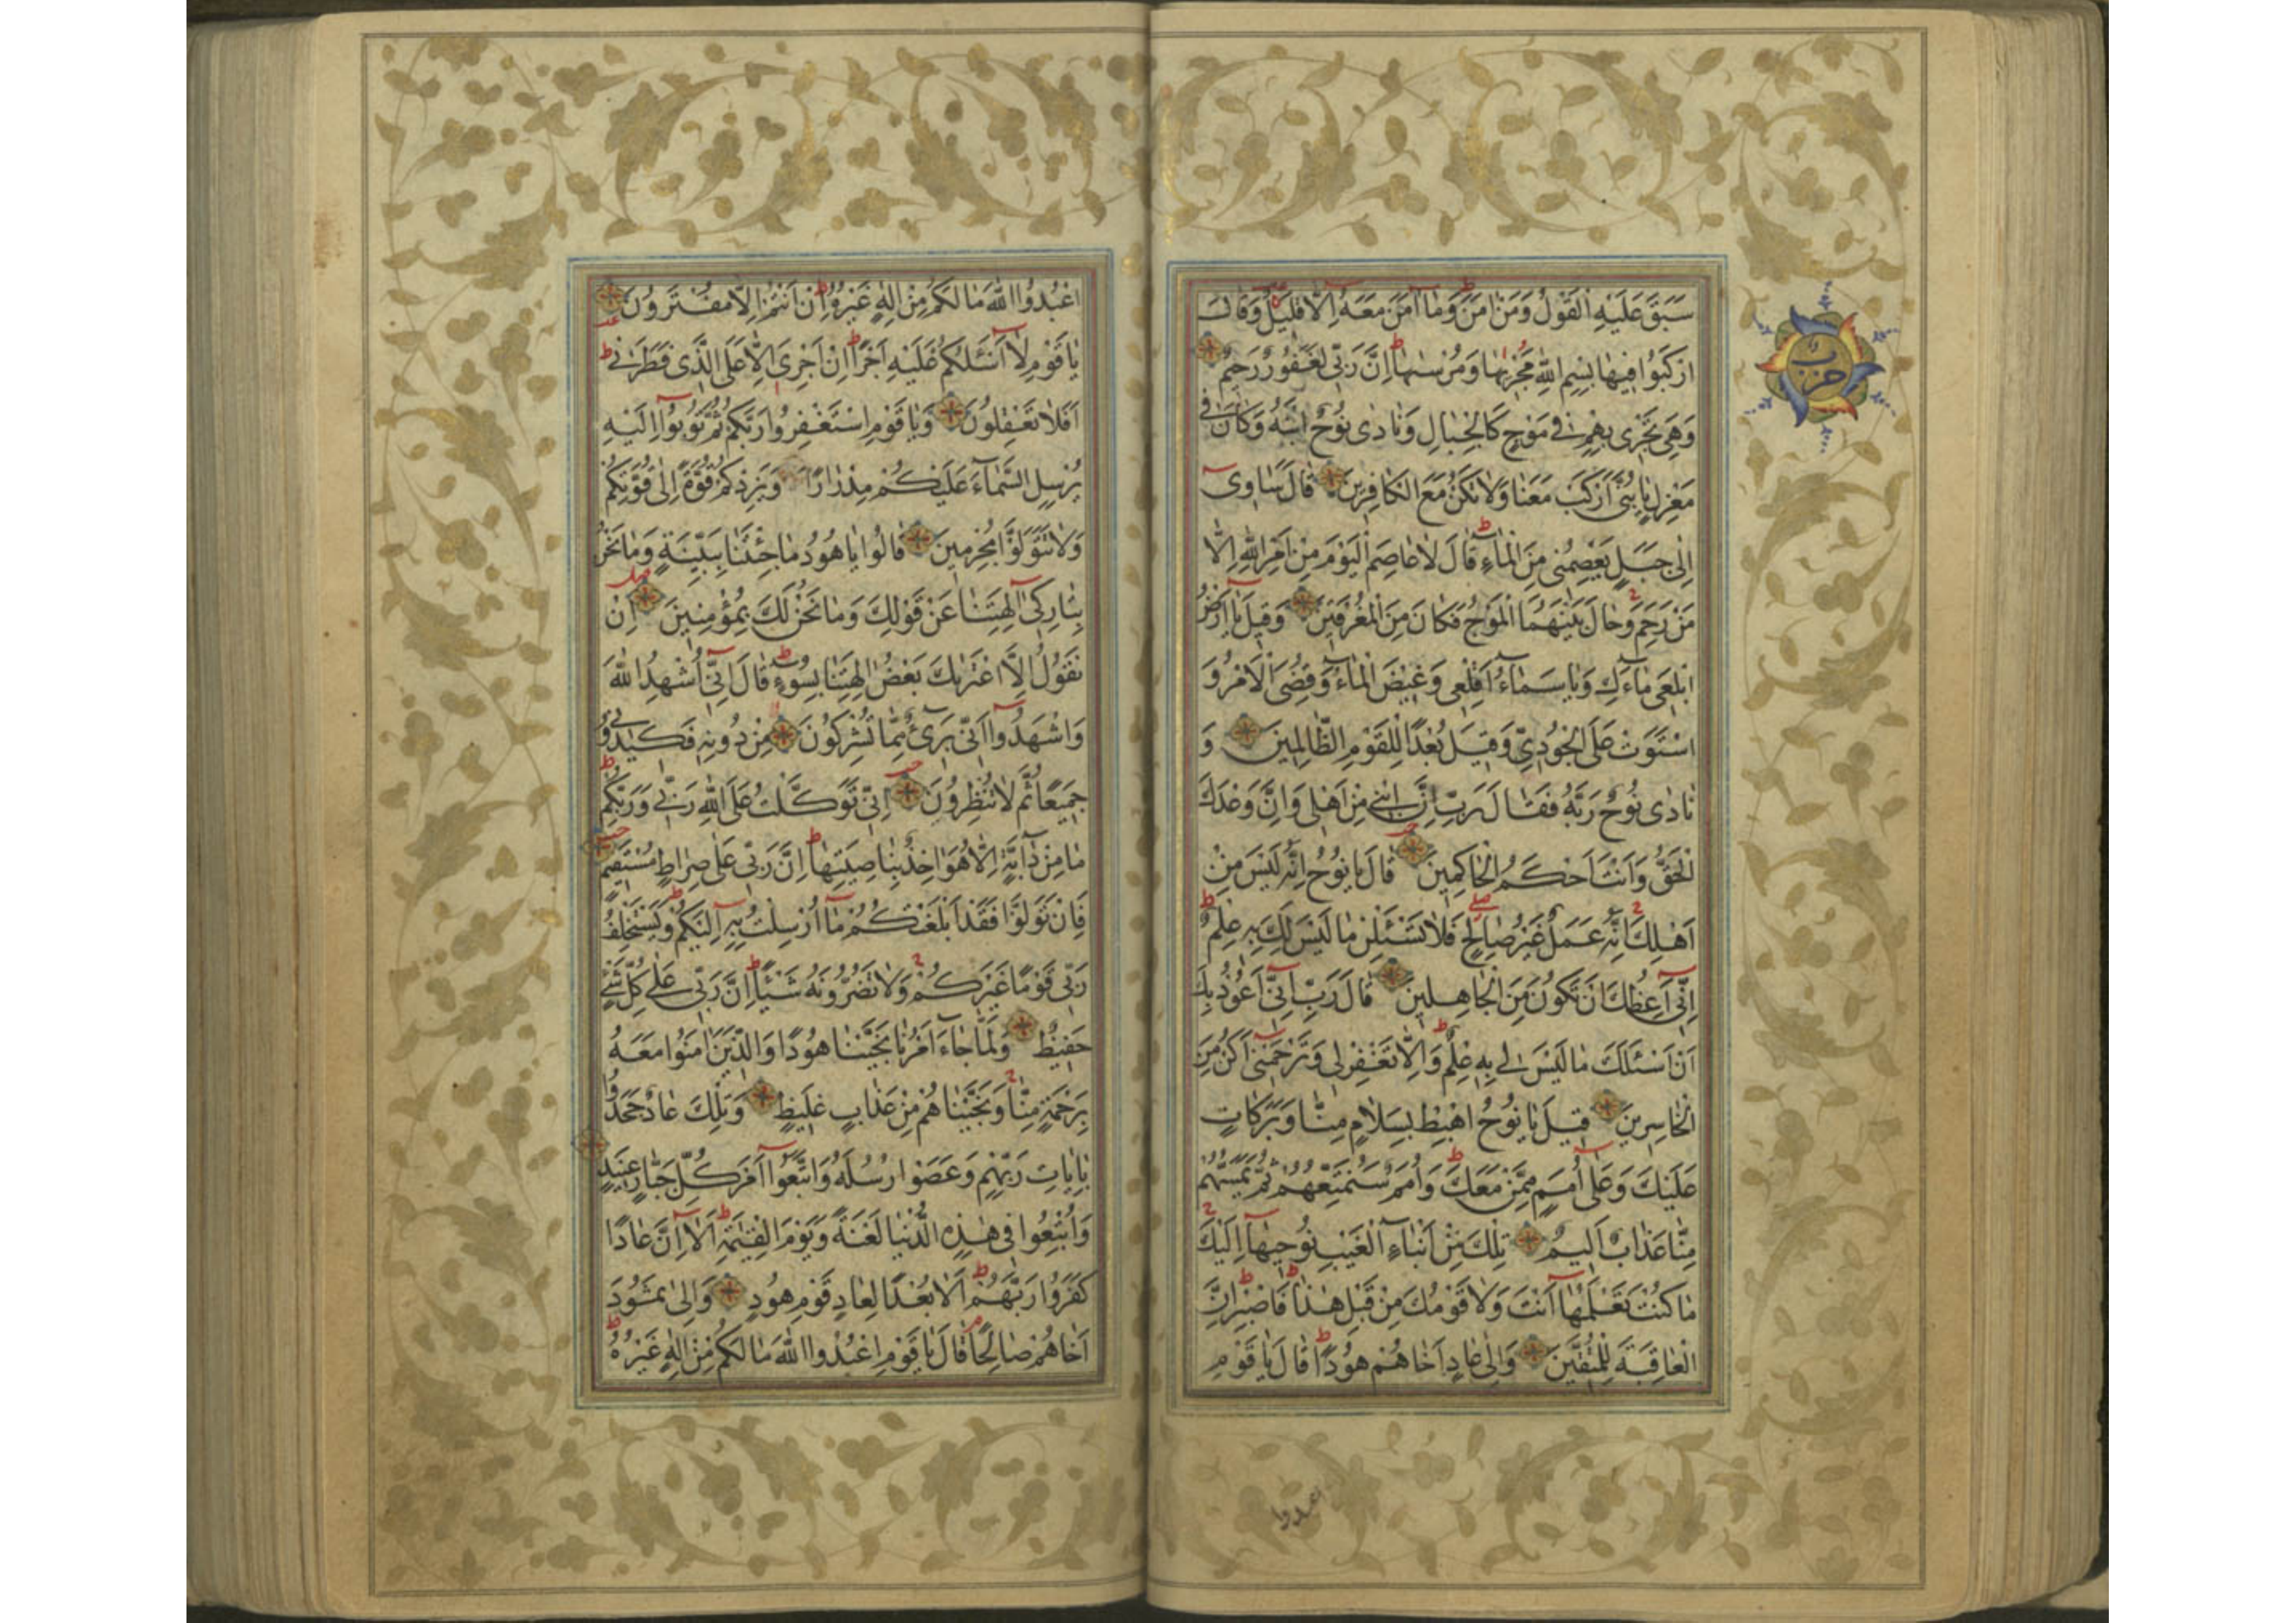 سَبَقَ عَلَيْهِ الْقَوْلُ وَمَنْ اٰمَنَ وَمَا اٰمَنَ مَعَهُ اِلَّا قَلِيلٌ وَقَالَ
ارْكَبُوا فِيهَا بِسْمِ اللّٰهِ مَجْرٰىهَا وَمُرْسٰىهَا اِنَّ رَبِّى لَغَفُورٌ رَحِيمٌ
وَهِىَ تَجْرِى بِهِمْ فِى مَوْجٍ كَالْجِبَالِ وَنَادٰى نُوحٌ ابْنَهُ وَكَانَ فِى
مَعْزِلٍ يَا بُنَىَّ ارْكَبْ مَعَنَا وَلَا تَكُنْ مَعَ الْكَافِرِينَ قَالَ سَاٰوِى
اِلٰى جَبَلٍ يَعْصِمُنِى مِنَ الْمَاءِ قَالَ لَا عَاصِمَ الْيَوْمَ مِنْ اَمْرِ اللّٰهِ اِلَّا
مَنْ رَحِمَ وَحَالَ بَيْنَهُمَا الْمَوْجُ فَكَانَ مِنَ الْمُغْرَقِينَ وَقِيلَ يَا اَرْضُ
ابْلَعِى مَاءَكِ وَيَا سَمَاءُ اَقْلِعِى وَغِيضَ الْمَاءُ وَقُضِىَ الْاَمْرُ وَ
اسْتَوَتْ عَلَى الْجُودِىِّ وَقِيلَ بُعْدًا لِلْقَوْمِ الظَّالِمِينَ وَ
نَادٰى نُوحٌ رَبَّهُ فَقَالَ رَبِّ اِنَّ ابْنِى مِنْ اَهْلِى وَاِنَّ وَعْدَكَ
الْحَقُّ وَاَنْتَ اَحْكَمُ الْحَاكِمِينَ قَالَ يَا نُوحُ اِنَّهُ لَيْسَ مِنْ
اَهْلِكَ اِنَّهُ عَمَلٌ غَيْرُ صَالِحٍ فَلَا تَسْئَلْنِ مَا لَيْسَ لَكَ بِهِ عِلْمٌ
اِنِّى اَعِظُكَ اَنْ تَكُونَ مِنَ الْجَاهِلِينَ قَالَ رَبِّ اِنِّى اَعُوذُ بِكَ
اَنْ اَسْئَلَكَ مَا لَيْسَ لِى بِهِ عِلْمٌ وَاِلَّا تَغْفِرْ لِى وَتَرْحَمْنِى اَكُنْ مِنَ
الْخَاسِرِينَ قِيلَ يَا نُوحُ اهْبِطْ بِسَلَامٍ مِنَّا وَبَرَكَاتٍ
عَلَيْكَ وَعَلٰى اُمَمٍ مِمَّنْ مَعَكَ وَاُمَمٌ سَنُمَتِّعُهُمْ ثُمَّ يَمَسُّهُمْ
مِنَّا عَذَابٌ اَلِيمٌ تِلْكَ مِنْ اَنْبَاءِ الْغَيْبِ نُوحِيهَا اِلَيْكَ
مَا كُنْتَ تَعْلَمُهَا اَنْتَ وَلَا قَوْمُكَ مِنْ قَبْلِ هٰذَا فَاصْبِرْ اِنَّ
الْعَاقِبَةَ لِلْمُتَّقِينَ وَاِلٰى عَادٍ اَخَاهُمْ هُودًا قَالَ يَا قَوْمِ
حزب
اعبدوا
اعْبُدُوا اللّٰهَ مَا لَكُمْ مِنْ اِلٰهٍ غَيْرُهُ اِنْ اَنْتُمْ اِلَّا مُفْتَرُونَ
يَا قَوْمِ لَا اَسْئَلُكُمْ عَلَيْهِ اَجْرًا اِنْ اَجْرِىَ اِلَّا عَلَى الَّذِى فَطَرَنِى
اَفَلَا تَعْقِلُونَ وَيَا قَوْمِ اسْتَغْفِرُوا رَبَّكُمْ ثُمَّ تُوبُوا اِلَيْهِ
يُرْسِلِ السَّمَاءَ عَلَيْكُمْ مِدْرَارًا وَيَزِدْكُمْ قُوَّةً اِلٰى قُوَّتِكُمْ
وَلَا تَتَوَلَّوْا مُجْرِمِينَ قَالُوا يَا هُودُ مَا جِئْتَنَا بِبَيِّنَةٍ وَمَا نَحْنُ
بِتَارِكِى اٰلِهَتِنَا عَنْ قَوْلِكَ وَمَا نَحْنُ لَكَ بِمُؤْمِنِينَ اِنْ
نَقُولُ اِلَّا اعْتَرٰيكَ بَعْضُ اٰلِهَتِنَا بِسُوءٍ قَالَ اِنِّى اُشْهِدُ اللّٰهَ
وَاشْهَدُوا اَنِّى بَرِىءٌ مِمَّا تُشْرِكُونَ مِنْ دُونِهِ فَكِيدُونِى
جَمِيعًا ثُمَّ لَا تُنْظِرُونَ اِنِّى تَوَكَّلْتُ عَلَى اللّٰهِ رَبِّى وَرَبِّكُمْ
مَا مِنْ دَابَّةٍ اِلَّا هُوَ اٰخِذٌ بِنَاصِيَتِهَا اِنَّ رَبِّى عَلٰى صِرَاطٍ مُسْتَقِيمٍ
فَاِنْ تَوَلَّوْا فَقَدْ اَبْلَغْتُكُمْ مَا اُرْسِلْتُ بِهِ اِلَيْكُمْ وَيَسْتَخْلِفُ
رَبِّى قَوْمًا غَيْرَكُمْ وَلَا تَضُرُّونَهُ شَيْئًا اِنَّ رَبِّى عَلٰى كُلِّ شَىْءٍ
حَفِيظٌ وَلَمَّا جَاءَ اَمْرُنَا نَجَّيْنَا هُودًا وَالَّذِينَ اٰمَنُوا مَعَهُ
بِرَحْمَةٍ مِنَّا وَنَجَّيْنَاهُمْ مِنْ عَذَابٍ غَلِيظٍ وَتِلْكَ عَادٌ جَحَدُوا
بِاٰيَاتِ رَبِّهِمْ وَعَصَوْا رُسُلَهُ وَاتَّبَعُوا اَمْرَ كُلِّ جَبَّارٍ عَنِيدٍ
وَاُتْبِعُوا فِى هٰذِهِ الدُّنْيَا لَعْنَةً وَيَوْمَ الْقِيٰمَةِ اَلَا اِنَّ عَادًا
كَفَرُوا رَبَّهُمْ اَلَا بُعْدًا لِعَادٍ قَوْمِ هُودٍ وَاِلٰى ثَمُودَ
اَخَاهُمْ صَالِحًا قَالَ يَا قَوْمِ اعْبُدُوا اللّٰهَ مَا لَكُمْ مِنْ اِلٰهٍ غَيْرُهُ